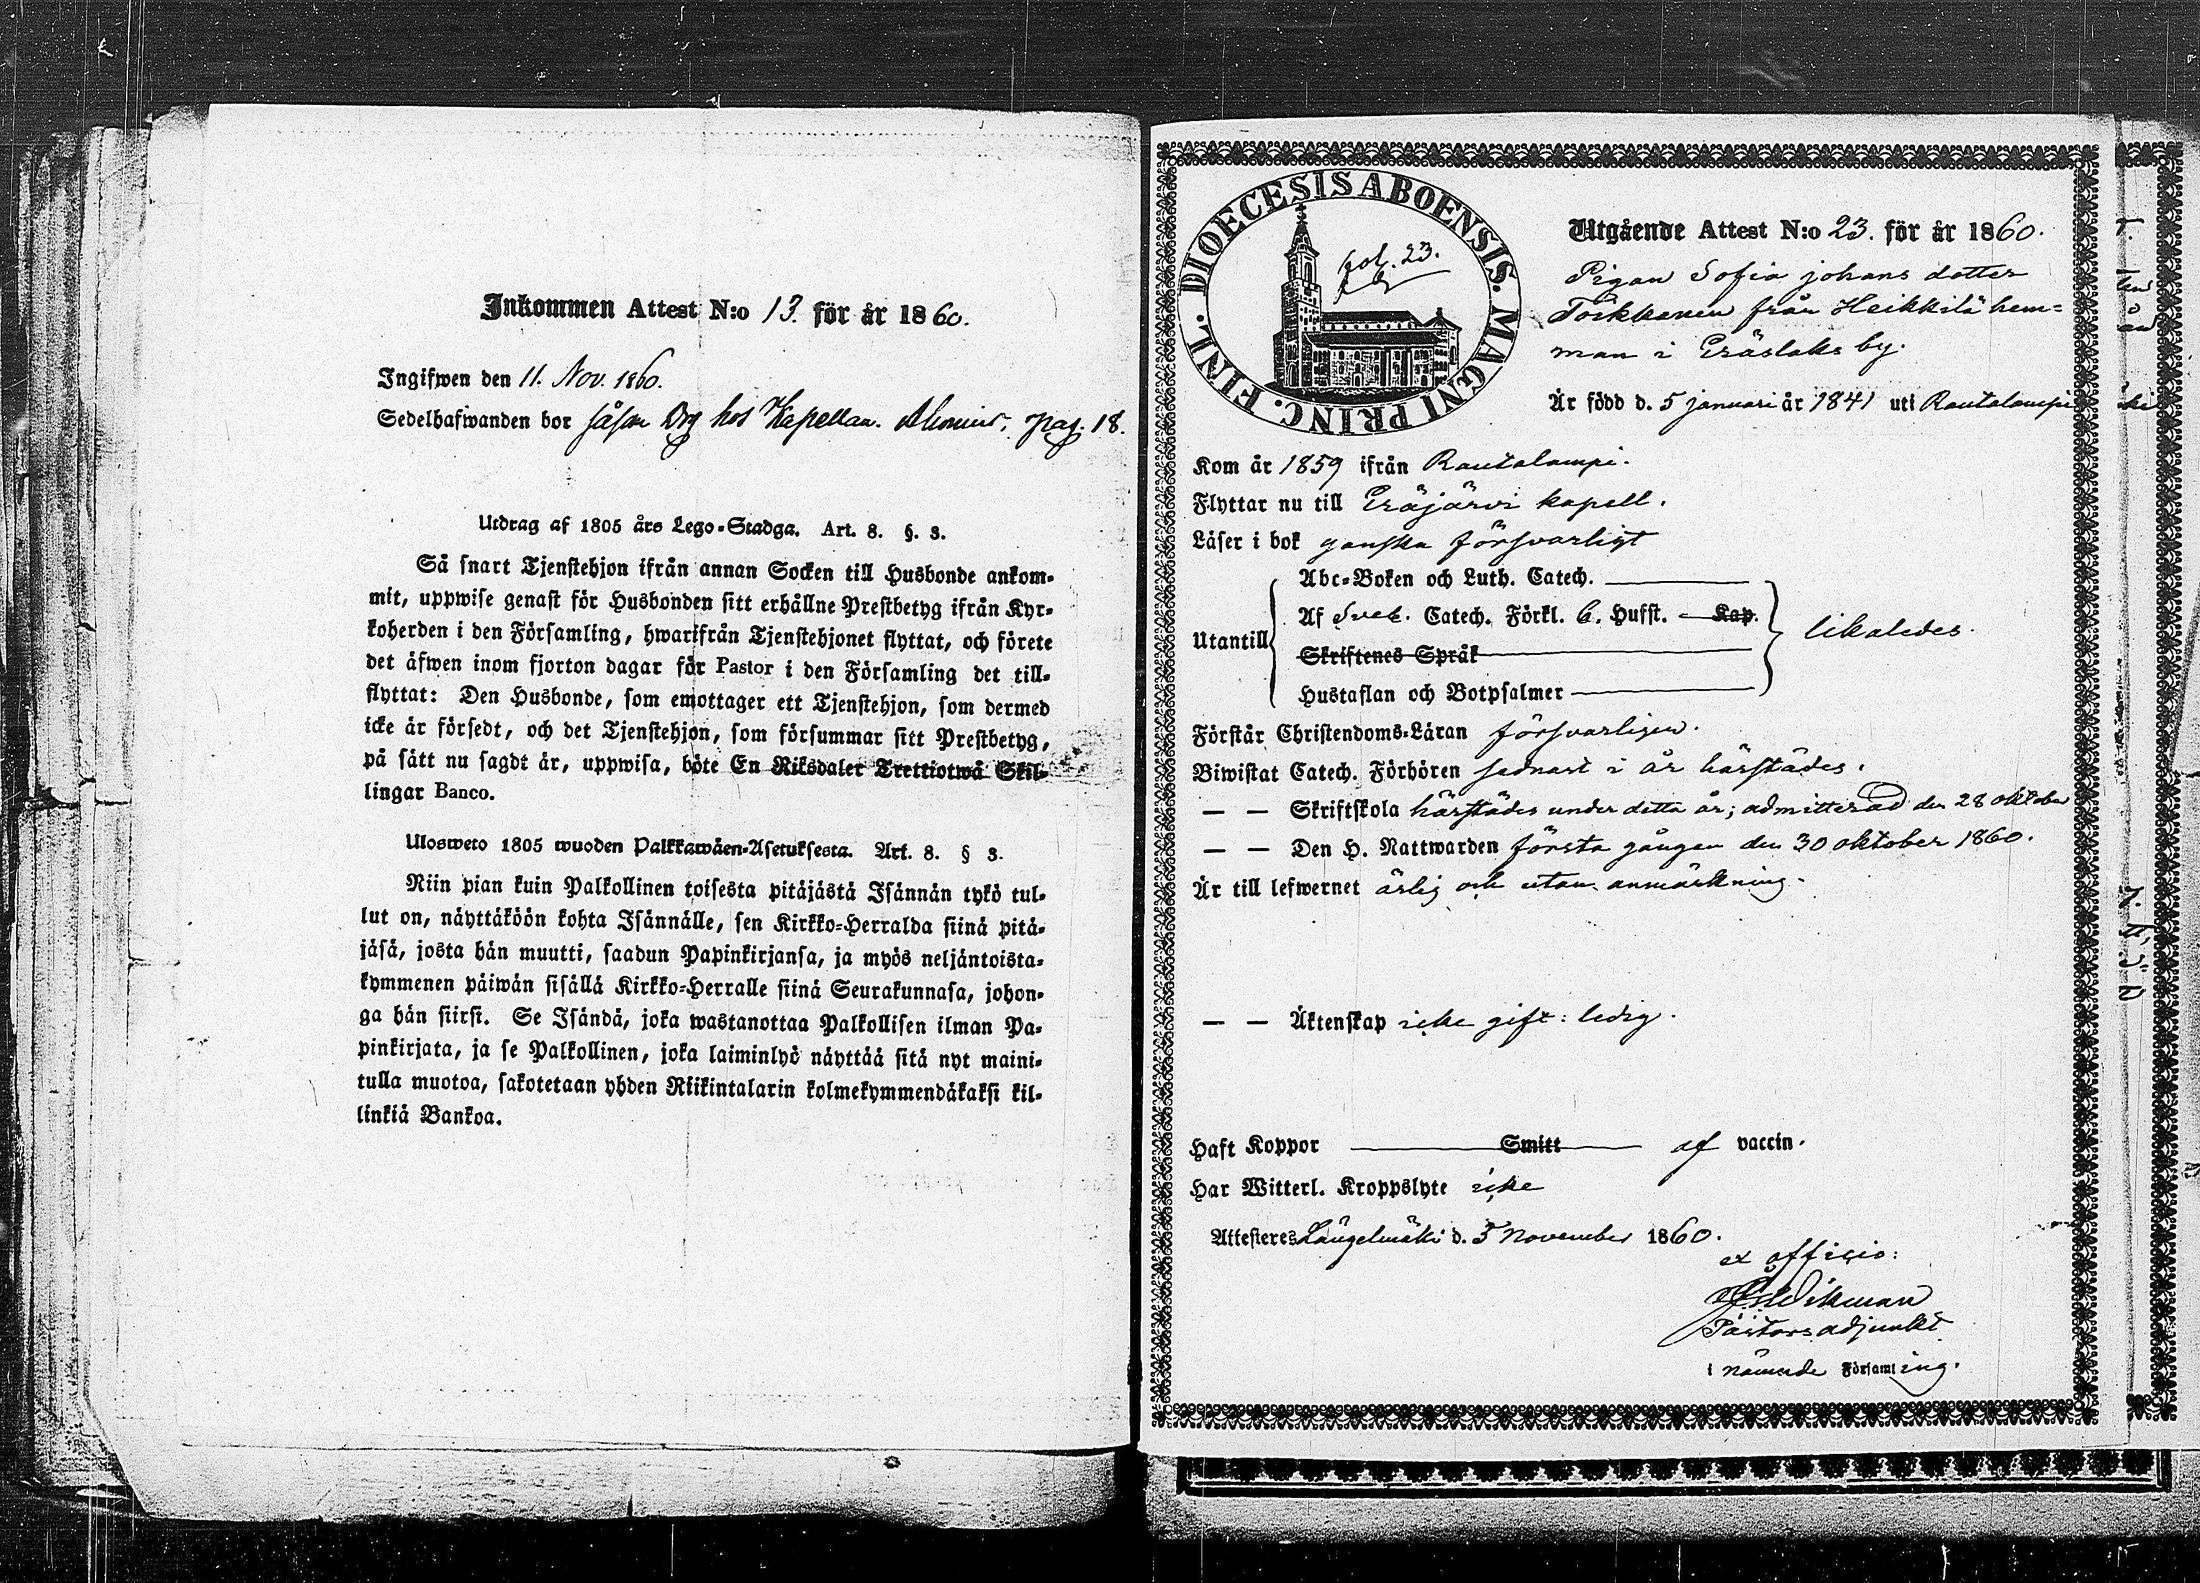 Inkommen Attest N:o 13. för år 1860.
Ingifwen den 11. Nov. 1860.
Sedelhafwanden bor såsom Drg hos Kapellan. pag. 18.
Utdrag af 1805 års Lego-Stadga. Art. 8. §. 3.
Så snart Tjenstehjon ifrån annan Socken till Husbonde ankom-
mit, uppwise genast för Husbonden sitt erhållne Prestbetyg ifrån Kyr-
koherden i den Församling, hwarifrån Tjenstehjonet flyttat, och förete
det äfwen inom fjorton dagar för Pastor i den Församling det till-
flyttat: Den Husbonde, som emottager ett Tjenstehjon, som dermed
icke är försedt, och det Tjenstehjon, som försummar sitt Prestbetyg,
på sätt nu sagdt är, uppwisa, böte En Riksdaler Trettiotwå Skil-
lingar Banco.
Ulosweto 1805 wuoden Palkkawäen-Asetuksesta. Art. 8. § 3.
Niin pian kuin Palkollinen toisesta pitäjästä Isännän tykö tul-
lut on, näyttäköön kohta Isännälle, sen Kirkko-Herralda siinä pitä-
jäsä, josta hän muutti, saadun Papinkirjansa, ja myös neljäntoista-
kymmenen päiwän sisällä Kirkko-Herralle siinä Seurakunnasa, johon-
ga hän siirsi. Se Isändä, joka wastanottaa Palkollisen ilman Pa-
pinkirjata, ja se Palkollinen, joka laiminlyö näyttää sitä nyt maini-
tulla muotoa, sakotetaan yhden Riikintalarin kolmekymmendäkaksi kil-
linkiä Bankoa.
DIOECESIS ABOENSIS. MAGNI PRINC. FINL.
fol. 23.
Utgående Attest N:o 23. för år 1860.
Pigan Sofia Johans dotter
Törkkönen från Heikkilä hem=
man i Eräslaks by.
Är född d. 5 januari år 1841 uti Rautalampi
Kom år 1859 ifrån Rautalampi.
Flyttar nu till Eräjärvi kapell.
Läser i bok ganska försvarligt
Abc-Boken och Luth. Catech.
Af Sveb. Catech. Förkl. C. Hufst. Kap.
Utantill likaledes.
Skriftenes Språk
Hustaflan och Botpsalmer
Förstår Christendoms-Läran försvarligen.
Biwistat Catech. Förhören sednast i år härstädes.
— — Skriftskola härstädes under detta år; admitterad den 28 oktober
— — Den H. Nattwarden första gången den 30 oktober 1860.
Är till lefwernet ärlig och utan anmärkning.
— — Äktenskap icke gift: ledig.
Haft Koppor Smitt af vaccin.
Har Witterl. Kroppslyte icke
Attesteres Längelmäki d. 5 November 1860.
ex officio:
Wikman
Pastorsadjunkt
i nämnde Församling.